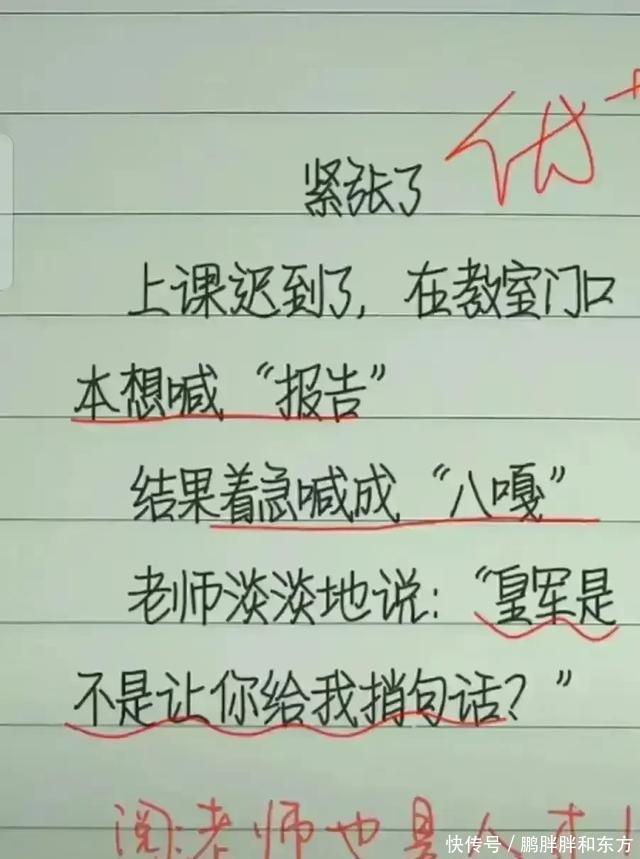 紧张了
优+
上课迟到了，在教室门口
本想喊“报告”
结果着急喊成“八嘎”
老师淡淡地说：“皇军是
不是让你给我捎句话？”
阅:老师也是人才！
快传号／鹏胖胖和东方